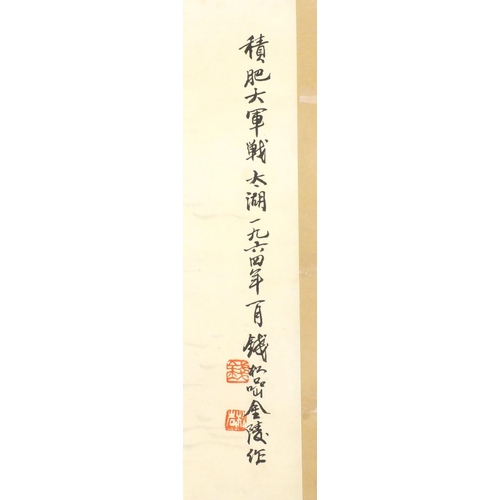 積肥大軍戰太湖一九六四年一月錢松喦金陵作